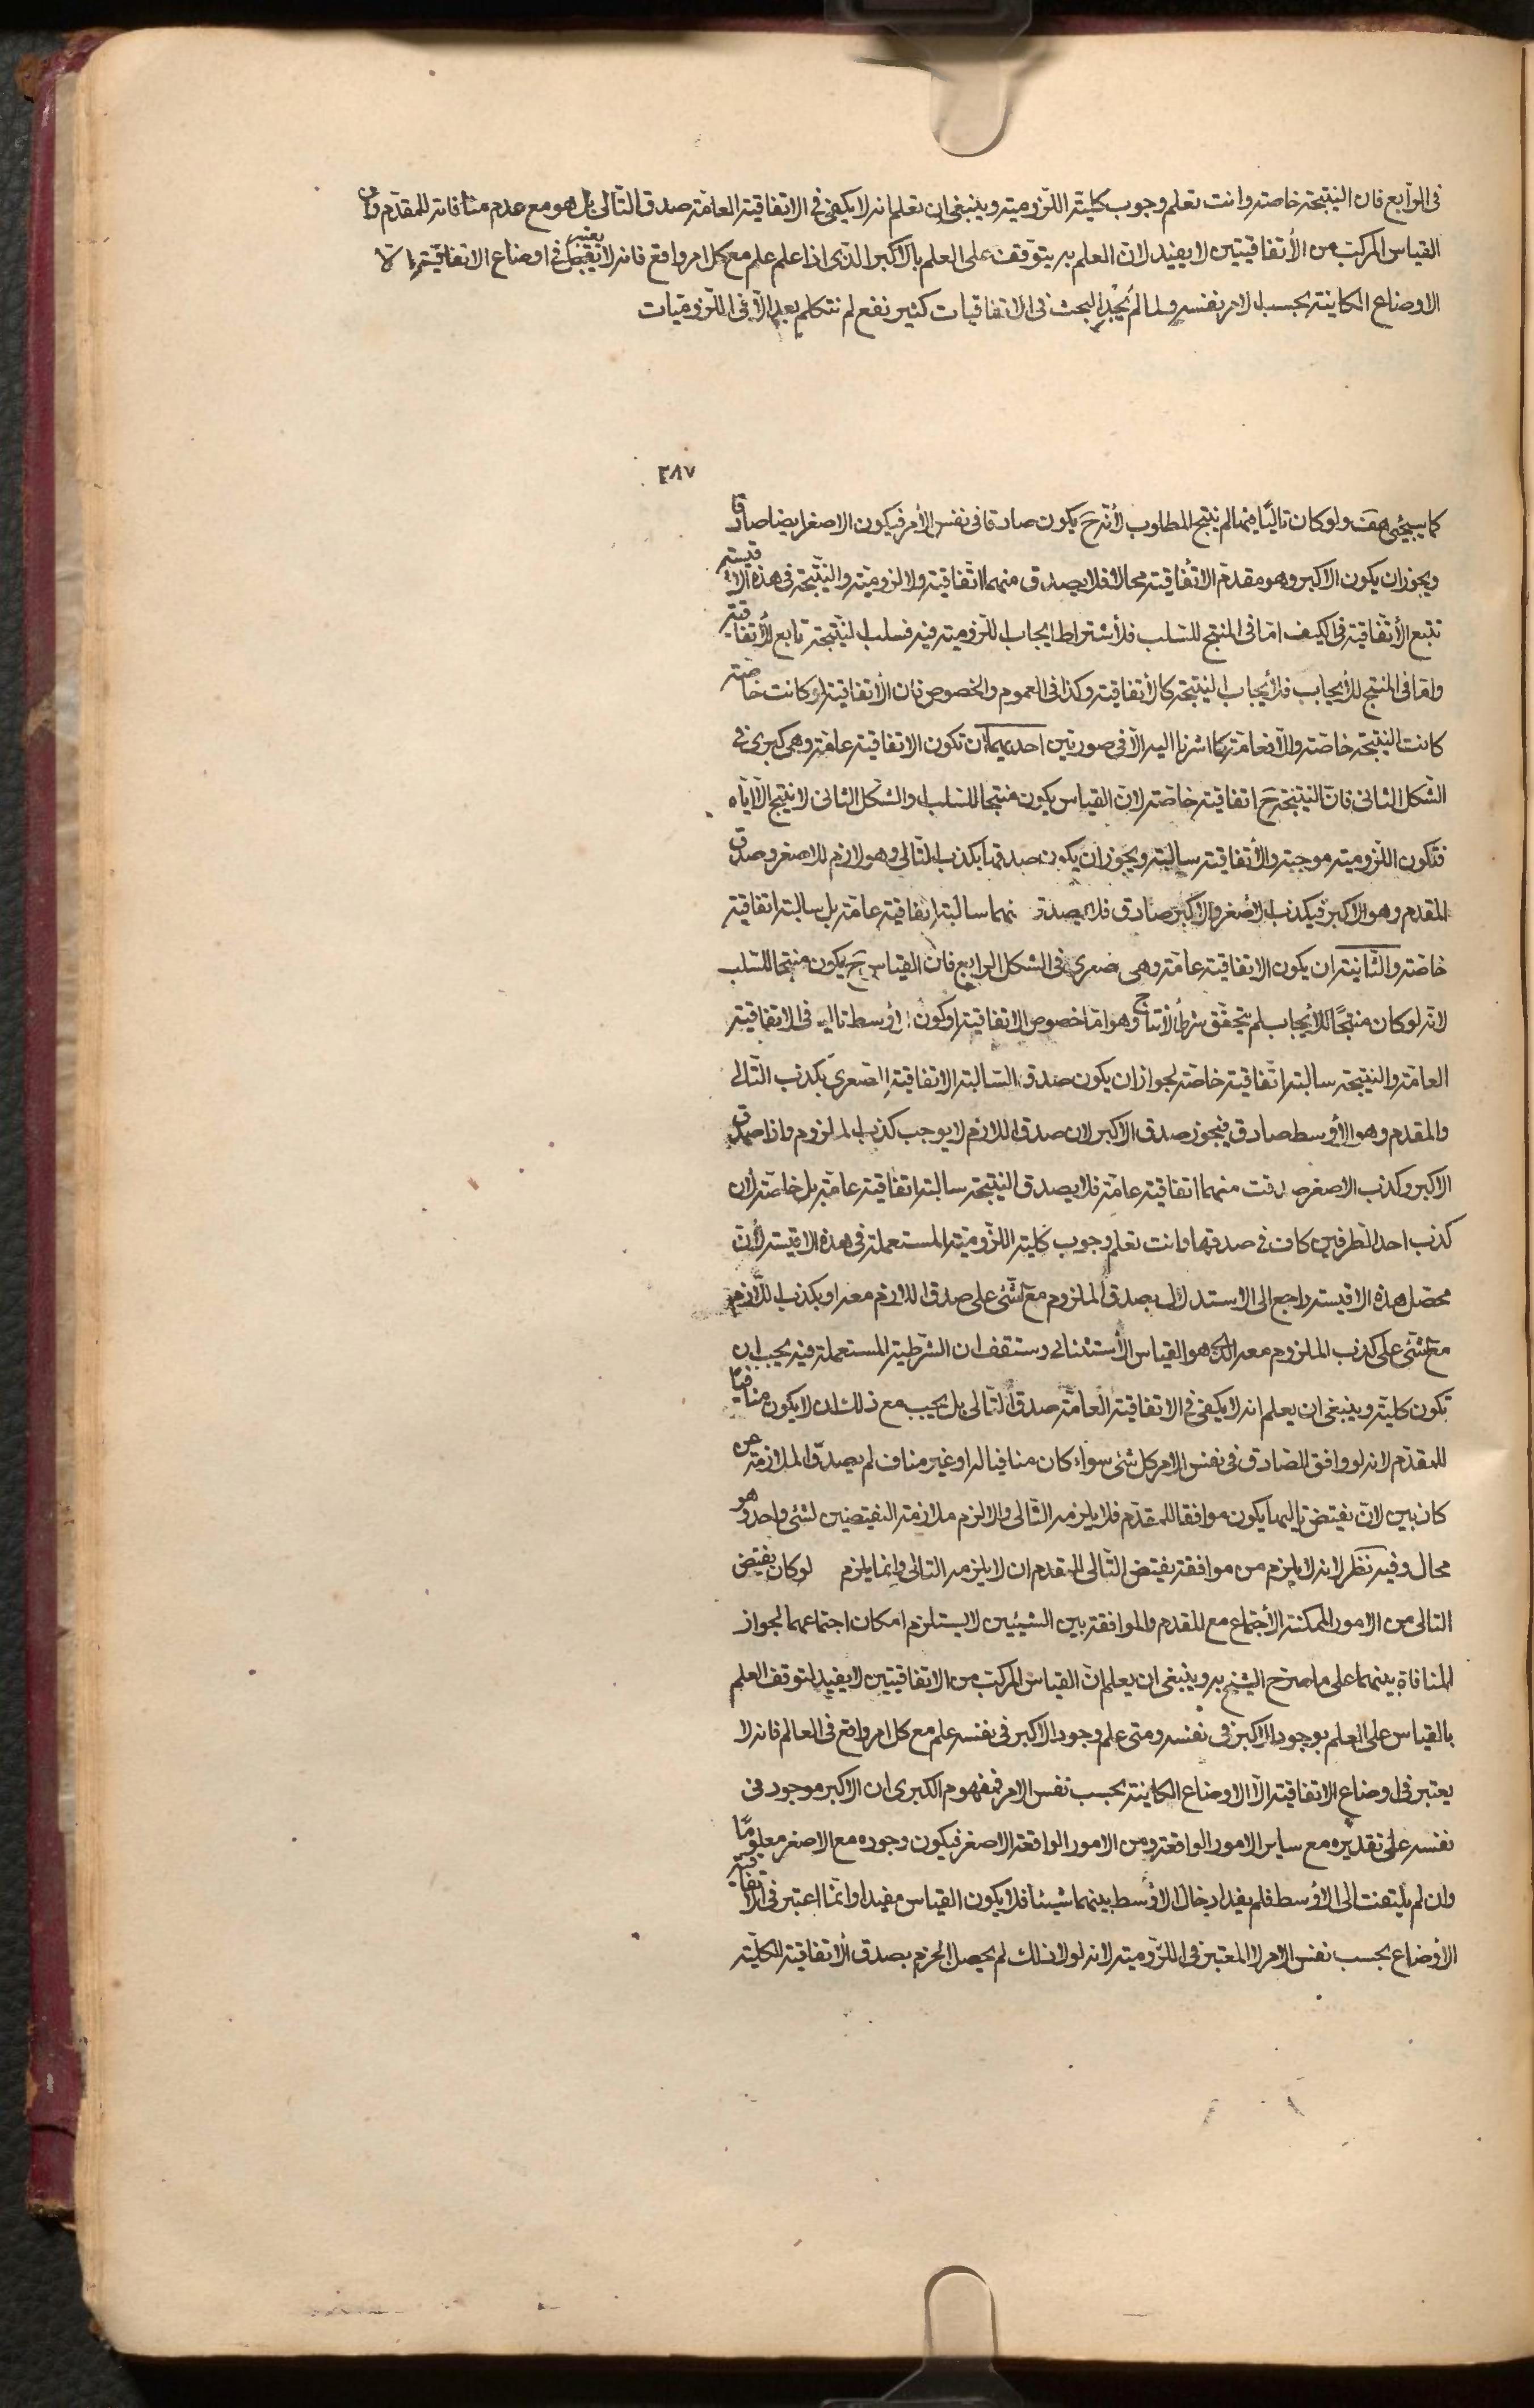 فى الرابع فان النتيجة خاصة وانت تعلم وجوب كلية اللزومية وينبغى ان تعلم انه لا يكفى فى الاتفاقية العامة صدق التالى بل هو مع عدم منافاته للمقدم وان
القياس المركب من الأتفاقيتين لا يفيد لان العلم به يتوقف على العلم بالاكبر الذى اذا علم علم مع كل امر واقع فانه لا يعتبر فى اوضاع الاتفاقية الا
الاوضاع الكاينة بحسب الامر نفسه ولما لم يُجْدِ البحث فى الاتفاقيات كثير نفع لم نتكلم بعد الا فى اللزوميات
٢٨٧
كما سيجئ هف ولو كان تاليًا منها لم ينتج المطلوب لأنه ح يكون صادقا فى نفس الأمر فيكون الاصغر ايضا صادقا
ويجوز ان يكون الاكبر وهو مقدم الاتفاقية محالا فلا يصدق منهما اتفاقية ولا لزومية والنتيجة فى هذه الاقيسة
تتبع الأتفاقية فى الكيف اما فى المنتج للسلب فلأشتراط ايجاب اللزومية فيه فسلب النتيجة تابع للأتفاقية
واما فى المنتج للأيجاب فلأيجاب النتيجة كالأتفاقية وكذا فى العموم والخصوص فان الأتفاقية لو كانت خاصة
كانت النتيجة خاصة والا فعامة كما اشرنا اليه الا فى صورتين احديهما ان تكون الاتفاقية عامة وهى كبرى فى
الشكل الثانى فان النتيجة ح اتفاقية خاصة لان القياس يكون منتجا للسلب والشكل الثانى لا ينتج الا اياه
فتكون اللزومية موجبة والأتفاقية سالبة ويجوز ان يكون صدقها بكذب التالى وهو لازم للاصغر وصدق
المقدم وهو الاكبر فيكذب الاصغر والاكبر صادق فلا يصدق منهما سالبة اتفاقية عامة بل سالبة اتفاقية
خاصة والثانية ان يكون الاتفاقية عامة وهى صغرى فى الشكل الرابع فان القياس ح يكون منتجا للسلب
لانه لو كان منتجًا للأيجاب لم يتحقق شرط الأنتاج وهو اما خصوص الاتفاقية او كون الأوسط تاليه فى الاتفاقية
العامة والنتيجة سالبة اتفاقية خاصة لجواز ان يكون صدق السالبة الاتفاقية الصغرى بكذب التالى
والمقدم وهو الأوسط صادق فيجوز صدق الاكبر لان صدق اللازم لا يوجب كذب الملزوم واذا صدق
الاكبر وكذب الاصغر صدقت منهما اتفاقية عامة فلا يصدق النتيجة سالبة اتفاقية عامة بل خاصة لأن
كذب احد الطرفين كاف فى صدقها وانت تعلم وجوب كلية اللزومية المستعملة فى هذه الاقيسة لأن
محصل هذه الاقيسة راجع الى الاستدلال بصدق الملزوم مع الشئ على صدق اللازم معه او بكذب اللازم
مع الشئ على كذب الملزوم معه الذى هو القياس الأستثنائى وستقف ان الشرطية المستعملة فيه يجب ان
تكون كلية وينبغى ان يعلم انه لا يكفى فى الاتفاقية العامة صدق التالى بل يجب مع ذلك ان لا يكون منافيا
للمقدم لانه لو وافق الصادق فى نفس الامر كل شئ سواء كان منافيا له او غير مناف لم يصدق الملازمة من
كاذبين لان نقيض تاليها يكون موافقا للمقدم فلا يلزمه التالى والا لزم ملازمة النقيضين لشئ واحد وهو
محال وفيه نظر لانه لا يلزم من موافقة نقيض التالى للمقدم ان لا يلزمه التالى وانما يلزم لو كان نقيض
التالى من الامور الممكنة الأجتماع مع المقدم والموافقة بين الشيئين لا يستلزم امكان اجتماعهما لجواز
المنافاة بينهما على ما صرح الشيخ به وينبغى ان يعلم ان القياس المركب من الاتفاقيتين لا يفيد لتوقف العلم
بالقياس على العلم بوجود الاكبر فى نفسه ومتى علم وجود الاكبر فى نفسه علم مع كل امر واقع فى العالم فانه لا
يعتبر فى اوضاع الاتفاقية الا الاوضاع الكاينة بحسب نفس الامر فمفهوم الكبرى ان الاكبر موجود فى
نفسه على تقديره مع ساير الامور الواقعة ومن الامور الواقعة الاصغر فيكون وجوده مع الاصغر معلومًا
وان لم يلتفت الى الاوسط فلم يفد ادخال الاوسط بينهما شيئا فلا يكون القياس مفيدا وانما اعتبر فى الاتفاقية
الأوضاع بحسب نفس الامر لا المعتبر فى اللزومية لانه لولا ذلك لم يحصل الجزم بصدق الاتفاقية الكلية